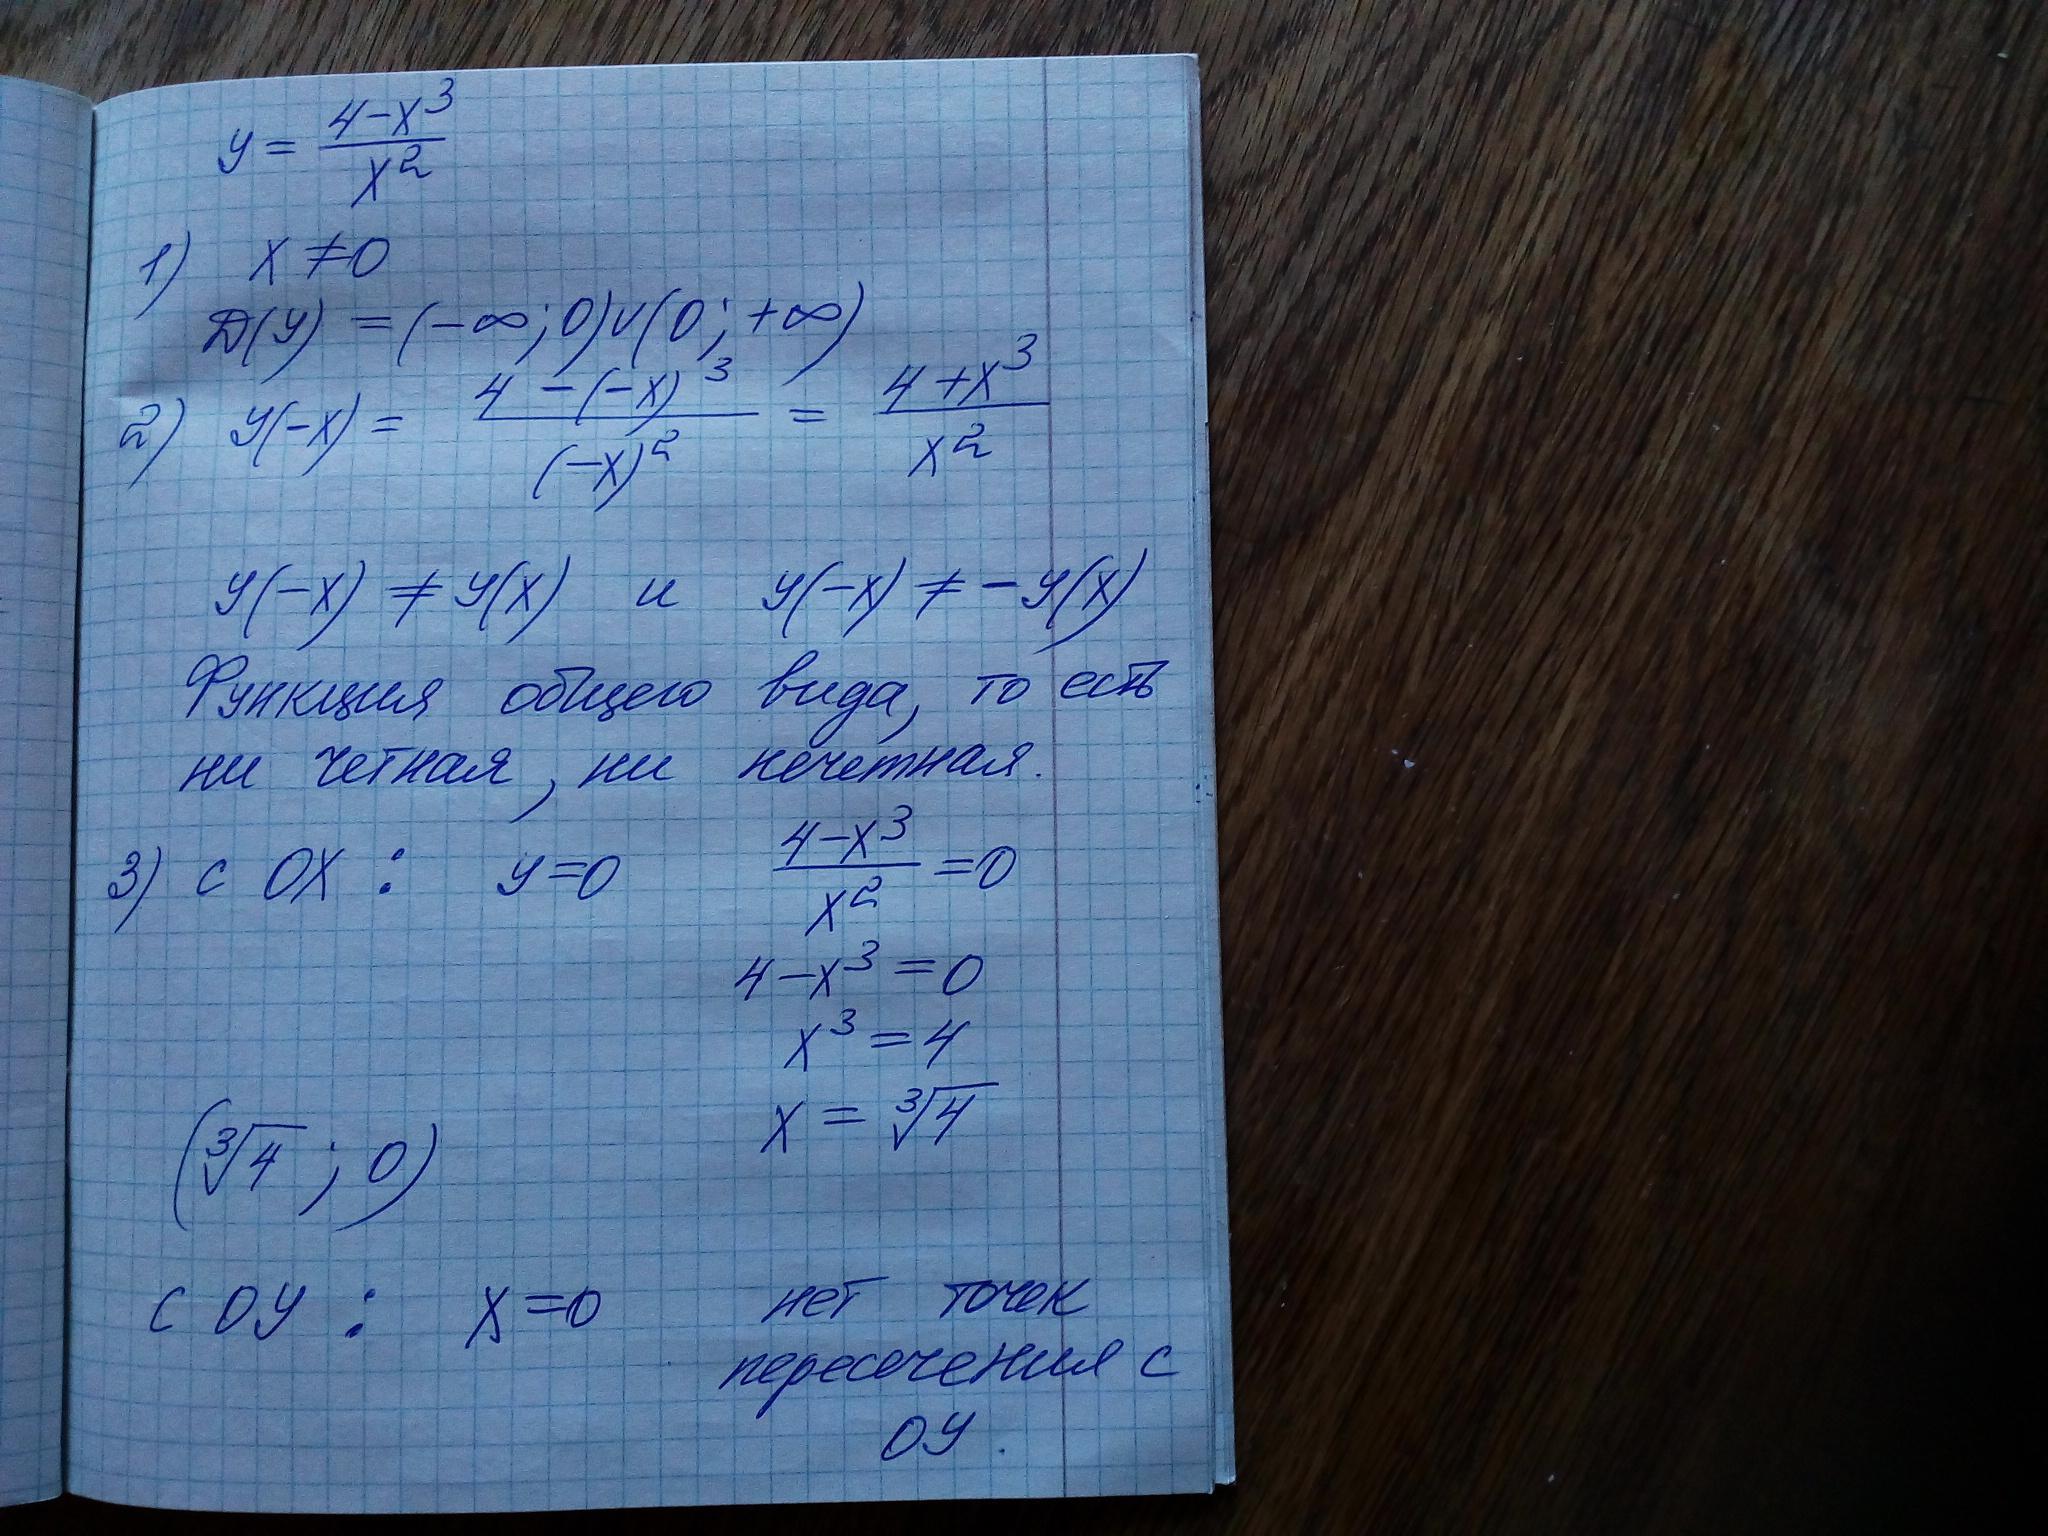 y = \frac{4-x^3}{x^2}
1) x ≠ 0
D(y) = (-∞; 0) ∪ (0; +∞)
2) y(-x) = \frac{4-(-x)^3}{(-x)^2} = \frac{4+x^3}{x^2}
y(-x) ≠ y(x) и y(-x) ≠ -y(x)
Функция общего вида, то есть
ни четная, ни нечетная.
3) с OX : y=0 \frac{4-x^3}{x^2} = 0
4-x^3 = 0
x^3 = 4
x = \sqrt[3]{4}
(\sqrt[3]{4}; 0)
с OY : x=0 нет точек
пересечения с
OY.